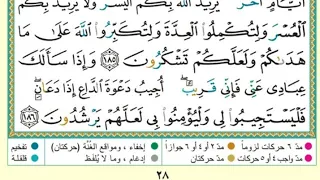 أَيَّامٍ أُخَرَ يُرِيدُ ٱللَّهُ بِكُمُ ٱلْيُسْرَ وَلَا يُرِيدُ بِكُمُ
ٱلْعُسْرَ وَلِتُكْمِلُوا۟ ٱلْعِدَّةَ وَلِتُكَبِّرُوا۟ ٱللَّهَ عَلَىٰ مَا
هَدَىٰكُمْ وَلَعَلَّكُمْ تَشْكُرُونَ ١٨٥ وَإِذَا سَأَلَكَ
عِبَادِى عَنِّى فَإِنِّى قَرِيبٌ ۖ أُجِيبُ دَعْوَةَ ٱلدَّاعِ إِذَا دَعَانِ ۖ
فَلْيَسْتَجِيبُوا۟ لِى وَلْيُؤْمِنُوا۟ بِى لَعَلَّهُمْ يَرْشُدُونَ ١٨٦
مدّ ٦ حركات لزوماً مدّ ٢ أو ٤ أو ٦ جوازاً إخفاء، ومواقع الغُنَّة (حركتان) تفخيم
مدّ واجب ٤ أو ٥ حركات مدّ حركتان إدغام، وما لا يُلفَظ قلقلة
٢٨